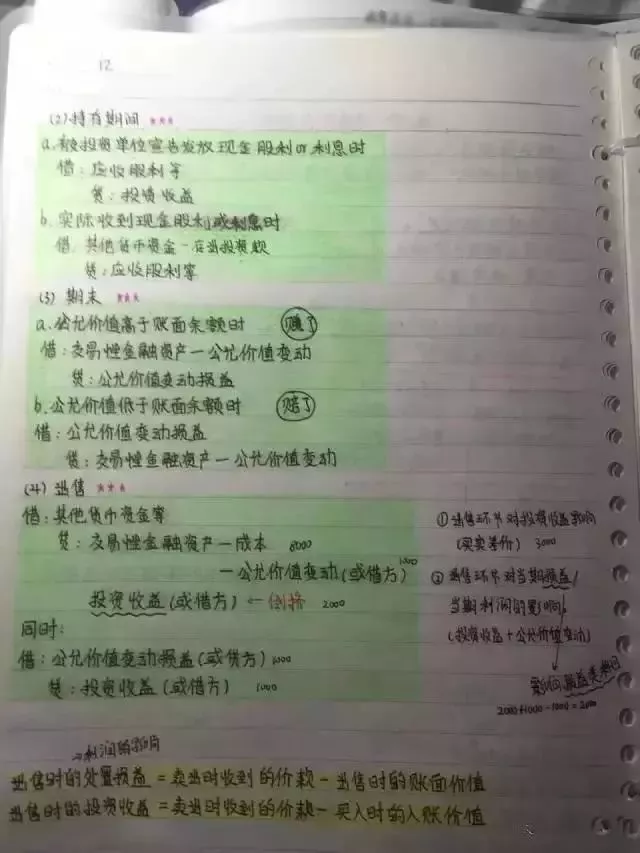 12
(2)持有期间 ***
a.被投资单位宣告发放现金股利or利息时
借：应收股利等
贷：投资收益
b.实际收到现金股利或利息时
借：其他货币资金-存出投资款
贷：应收股利等
(3)期末 ***
a.公允价值高于账面余额时 赚了
借：交易性金融资产—公允价值变动
贷：公允价值变动损益
b.公允价值低于账面余额时 赔了
借：公允价值变动损益
贷：交易性金融资产—公允价值变动
(4)出售 ***
借：其他货币资金等
贷：交易性金融资产—成本 8000
—公允价值变动(或借方) 1000
投资收益(或借方) ← 倒挤 2000
同时：
借：公允价值变动损益(或贷方) 1000
贷：投资收益(或借方) 1000
①出售环节对投资收益影响
(买卖差价) 3000
②出售环节对当期损益/
当期利润的影响
(投资收益+公允价值变动)
影响损益类科目
2000+1000-1000=2000
→利润的影响
出售时的处置损益=卖出时收到的价款-出售时的账面价值
出售时的投资收益=卖出时收到的价款-买入时的入账价值